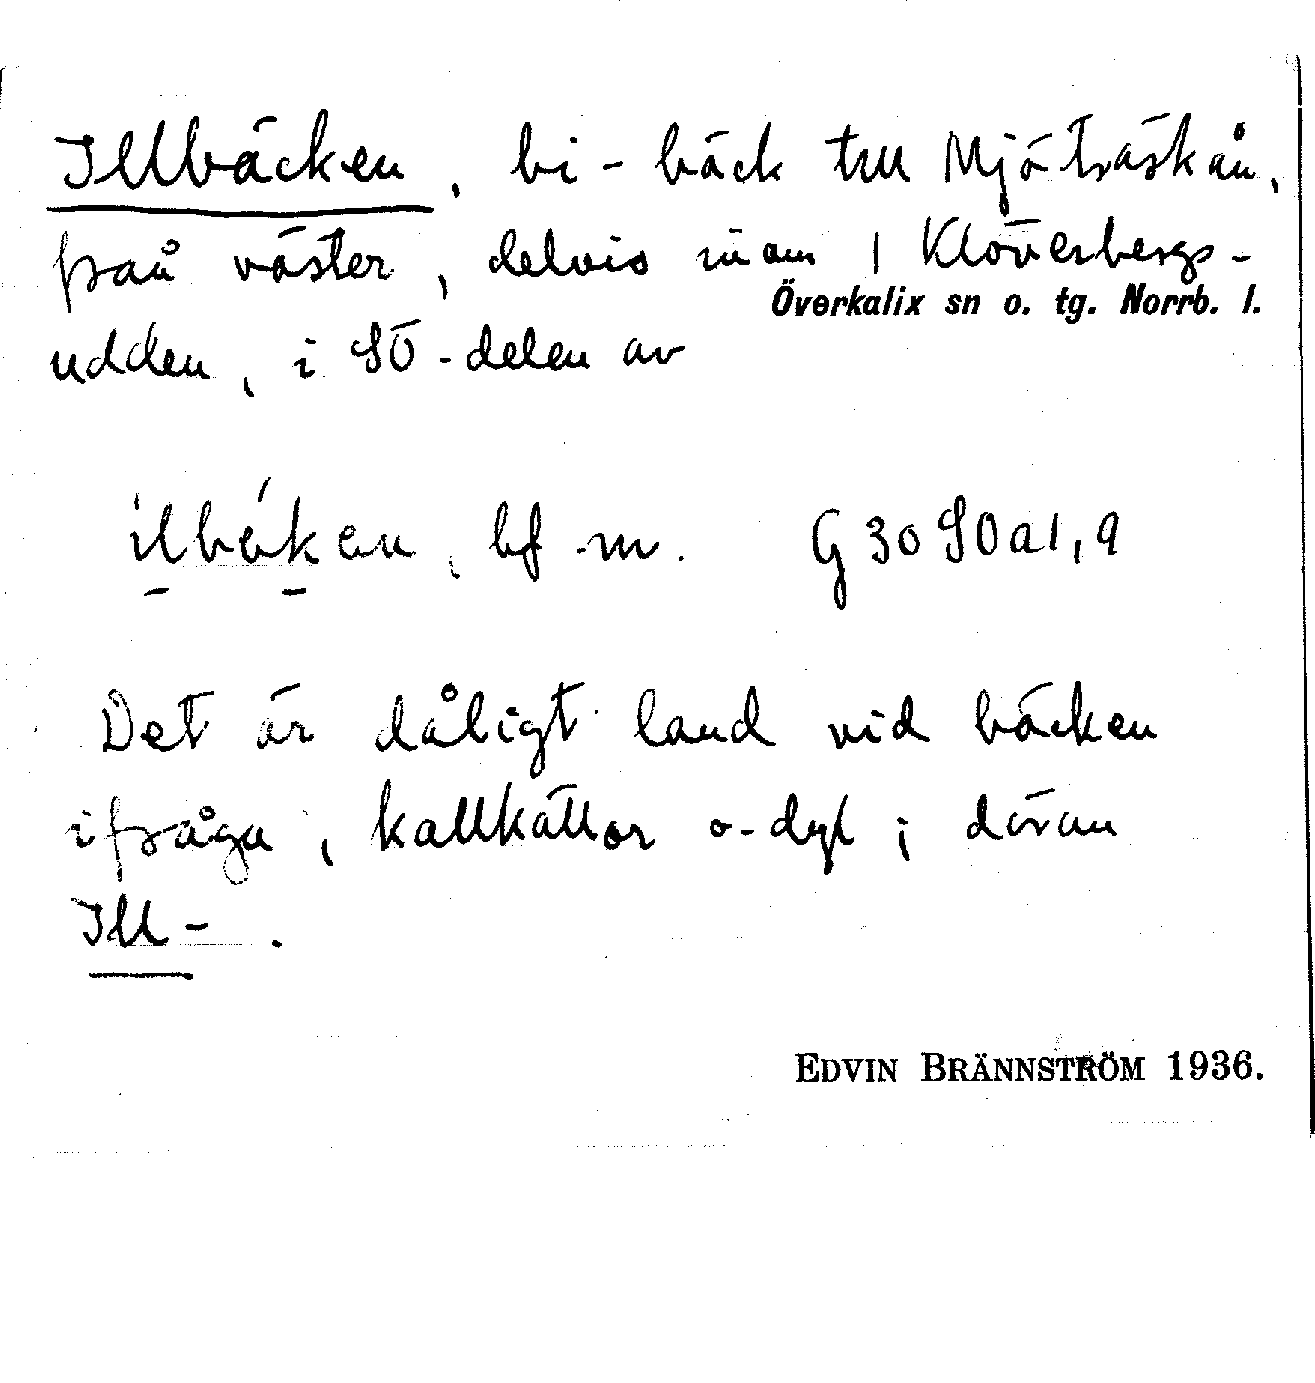 Illbäcken, bi-bäck till Mjöträskån,
från väster, delvis inom 1 Klöverbergs-
Överkalix sn o. tg. Norrb. l.
udden, i SÖ-delen av
ilbékan, bf. m. G 30 SO a1,9
Det är dåligt land vid bäcken
ifråga, kallkällor o. dyl; därav
Ill-.
EDVIN BRÄNNSTRÖM 1936.